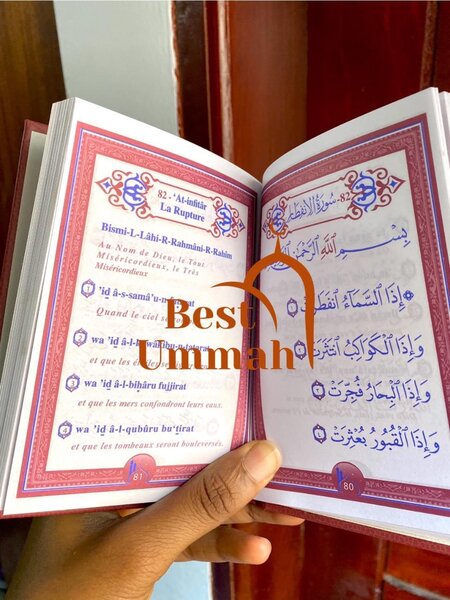 82 - 'At-infitâr
La Rupture
Bismi-L-Lâhi-R-Rahmâni-R-Rahîm
Au Nom de Dieu, le Tout
Miséricordieux, le Très
Miséricordieux
1 'id â-s-samâ'u-n
Quand le ciel
2 wa 'id â-l-
et que les
3 wa 'id â-l-bihâru fujjirat
et que les mers confondront leurs eaux.
4 wa 'id â-l-qubûru bu'tirat
et que les tombeaux seront bouleversés.
81
82- سُورَةُ الانفِطَار
بِسْمِ ٱللَّهِ ٱلرَّحْمَٰنِ
إِذَا ٱلسَّمَآءُ ٱنفَطَرَتْ ١
وَإِذَا ٱلْكَوَاكِبُ ٱنتَثَرَتْ ٢
وَإِذَا ٱلْبِحَارُ فُجِّرَتْ ٣
وَإِذَا ٱلْقُبُورُ بُعْثِرَتْ ٤
80
Best
Ummah